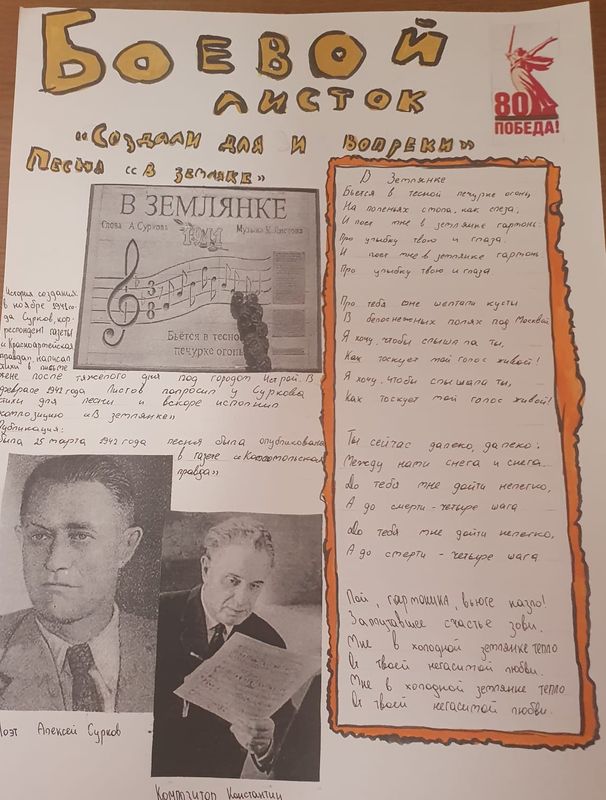 Боевой
листок
"Создали для и вопреки"
Песня "В землянке"
80
ПОБЕДА!
В ЗЕМЛЯНКЕ
Слова А.Суркова
Музыка К.Листова
3
8
Бьётся в тесной
печурке огонь
История создания:
в ноябре 1941 го-
да Сурков, кор-
респондент газеты
"Красноармейская
правда", написал
стихи в письме
жене после тяжелого дня под городом Истрой. В
феврале 1942 года Листов попросил у Суркова
стихи для песни и вскоре исполнил
композицию "В землянке"
Публикация:
была 25 марта 1942 года песня была опубликована
в газете "Комсомольская
правда"
Поэт Алексей Сурков
Композитор Константин
В Землянке
Бьётся в тесной печурке огонь,
На поленьях смола, как слеза,
И поёт мне в землянке гармонь
Про улыбку твою и глаза.
И поет мне в землянке гармонь
Про улыбку твою и глаза
Про тебя мне шептали кусты
В белоснежных полях под Москвой
Я хочу, чтобы слышала ты,
Как тоскует мой голос живой!
Я хочу, чтобы слышала ты,
Как тоскует мой голос живой!
Ты сейчас далеко, далеко.
Между нами снега и снега.
До тебя мне дойти нелегко,
А до смерти - четыре шага
До тебя мне дойти нелегко,
А до смерти - четыре шага.
Пой, гармоника, вьюге назло!
Заплутавшее счастье зови.
Мне в холодной землянке тепло
От твоей негасимой любви.
Мне в холодной землянке тепло
От твоей негасимой любви.